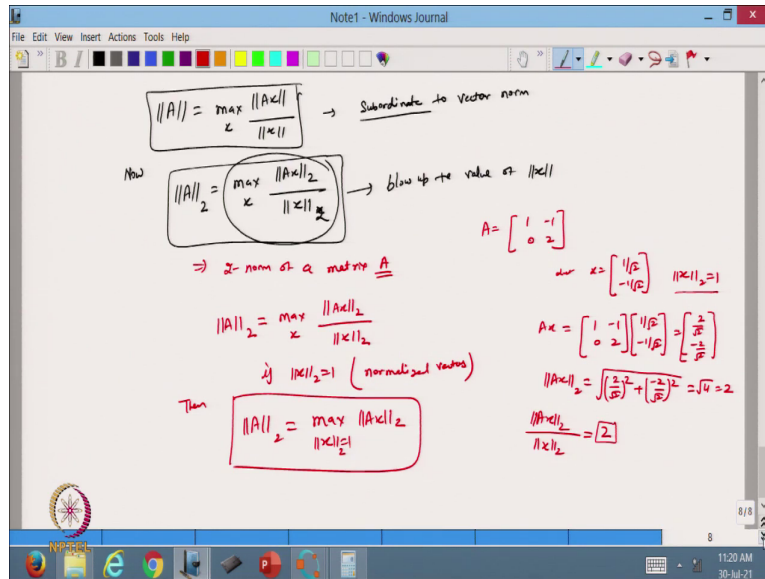 Note1 - Windows Journal
File Edit View Insert Actions Tools Help
B I
||A|| = max_x ||Ax|| / ||x|| → Subordinate to vector norm
Now ||A||_2 = max_x ||Ax||_2 / ||x||_2 → blow up the value of ||x||
⇒ 2-norm of a matrix A
||A||_2 = max_x ||Ax||_2 / ||x||_2
if ||x||_2 = 1 (normalized vector)
Then ||A||_2 = max_{||x||_2=1} ||Ax||_2
A = [1 -1; 0 2]
x = [1/√2; -1/√2] ||x||_2 = 1
Ax = [1 -1; 0 2] [1/√2; -1/√2] = [2/√2; -2/√2]
||Ax||_2 = √((2/√2)^2 + (-2/√2)^2) = √4 = 2
||Ax||_2 / ||x||_2 = 2
8/8
8
NPTEL
11:20 AM
30-Jul-21